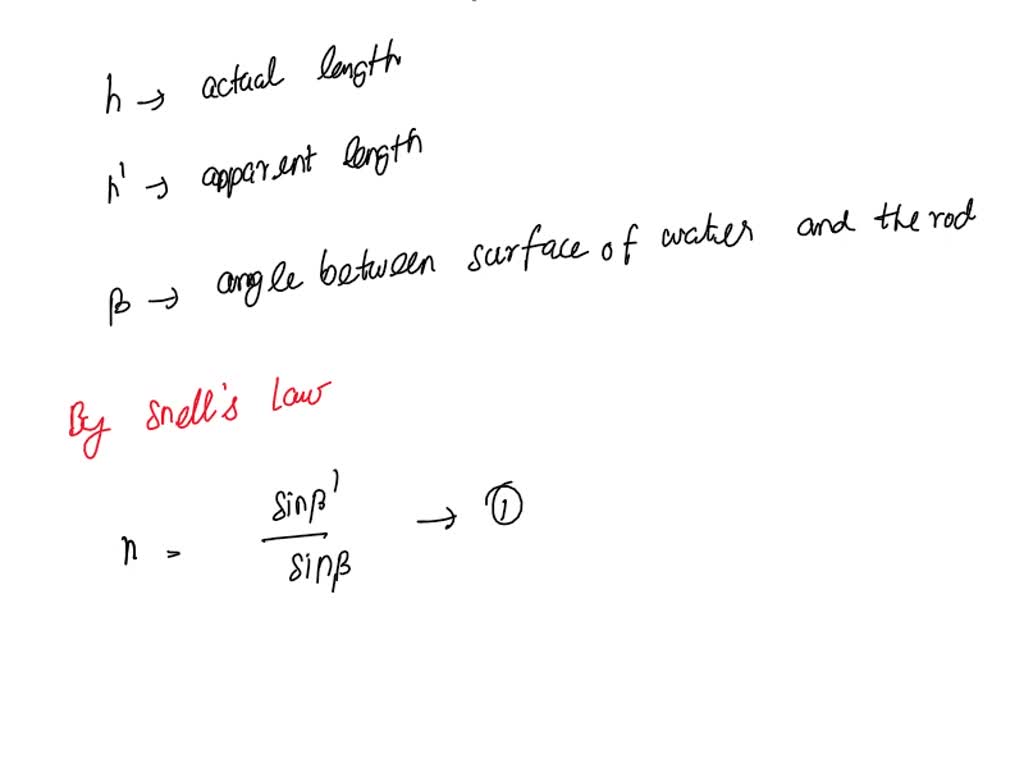 h → actual length
h' → apparent length
β → angle between surface of water and the rod
By Snell's Law
n = sinβ' / sinβ → ①